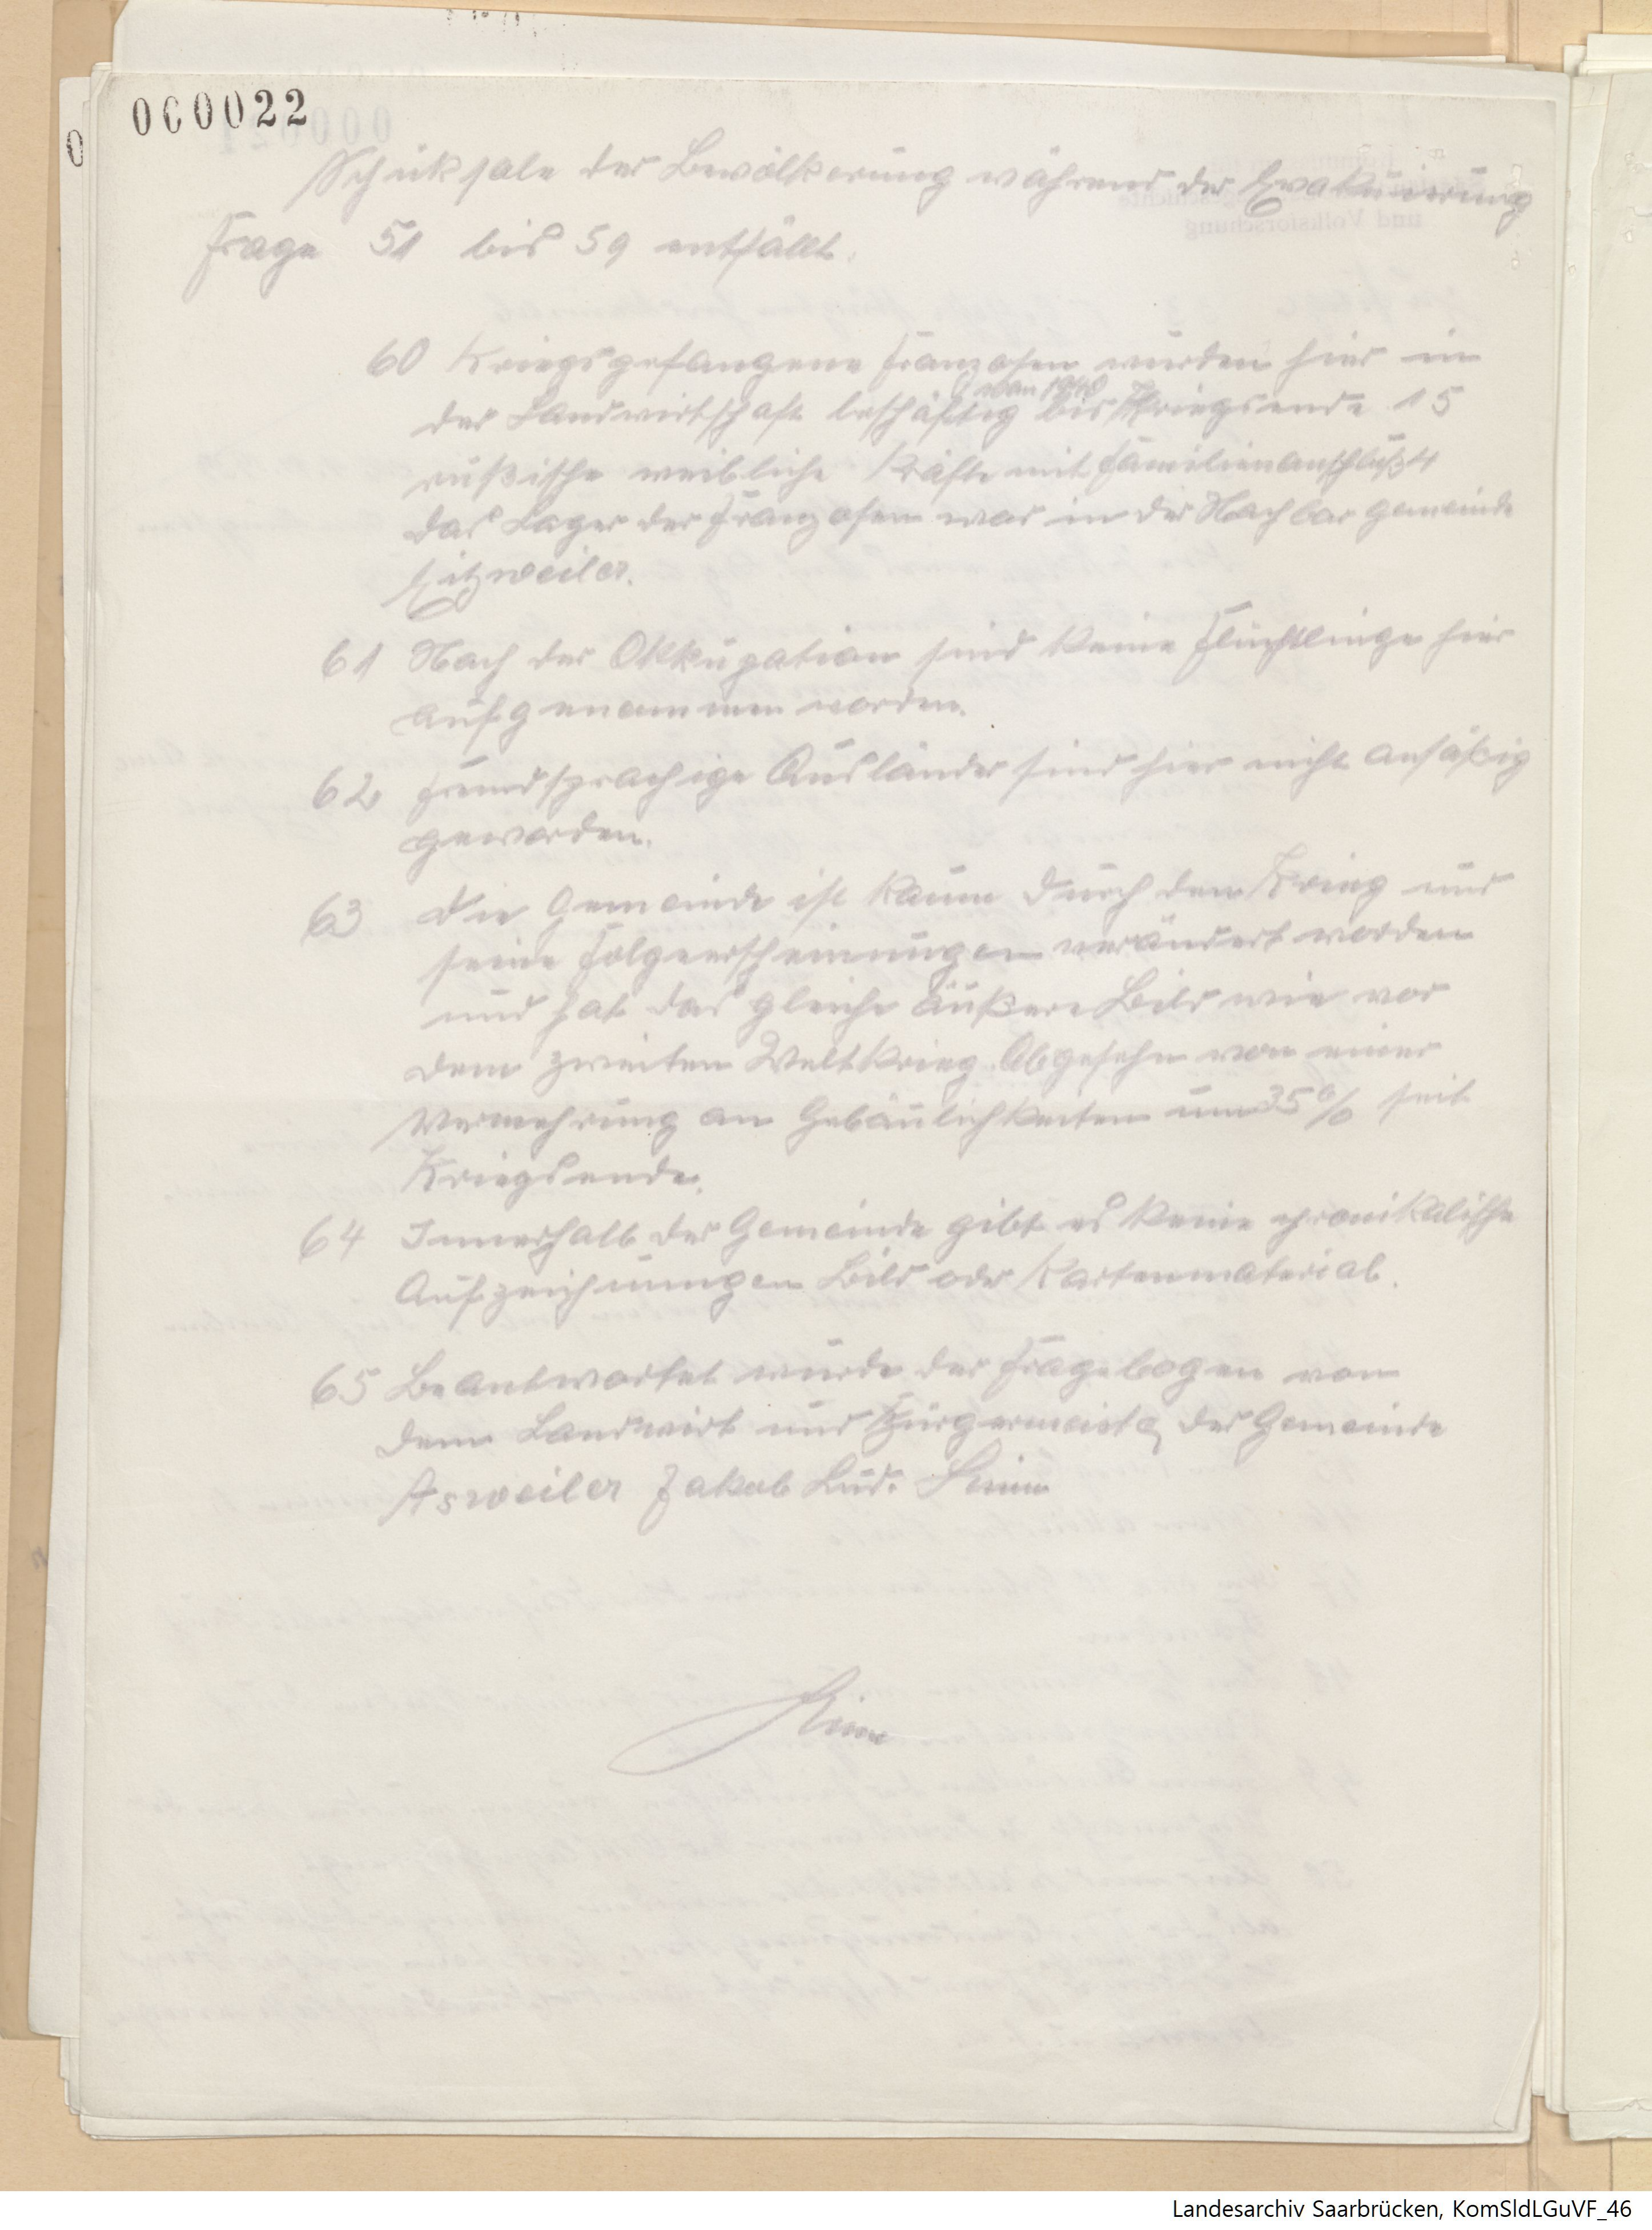 000022
Schiksale der Bevölkerung während der Evakuierung
Frage 51 bis 59 entfällt.
60 Kriegsgefangene Franzosen wurden hier in
von 1940
der Landwirtschaft beschäftig bis Kriegsende 15
rußische weibliche Kräfte mit Familienanschluß 4
Das Lager der Franzosen war in der Nachbar gemeinde
Eitzweiler.
61 Nach der Okkupation sind keine Flüchtlinge hier
aufgenommen worden.
62 Fremdsprachige Ausländer sind hier nicht ansäßig
geworden.
63 Die Gemeinde ist kaum durch den Krieg und
seine Folgeerscheinungen verändert worden
und hat das gleiche äußere Bild wie vor
dem zweiten Weltkrieg. Abgesehn von einer
Vermehrung an Gebäulichkeiten um 35% seit
Kriegsende.
64 Innerhalb der Gemeinde gibt es keine chronikalische
Aufzeichnungen Bild oder Kartenmaterial.
65 Beantwortet wurde der Fragebogen von
dem Landwirt und Bürgermeister der Gemeinde
Asweiler Jakob Lud.
Landesarchiv Saarbrücken, KomSldLGuVF_46